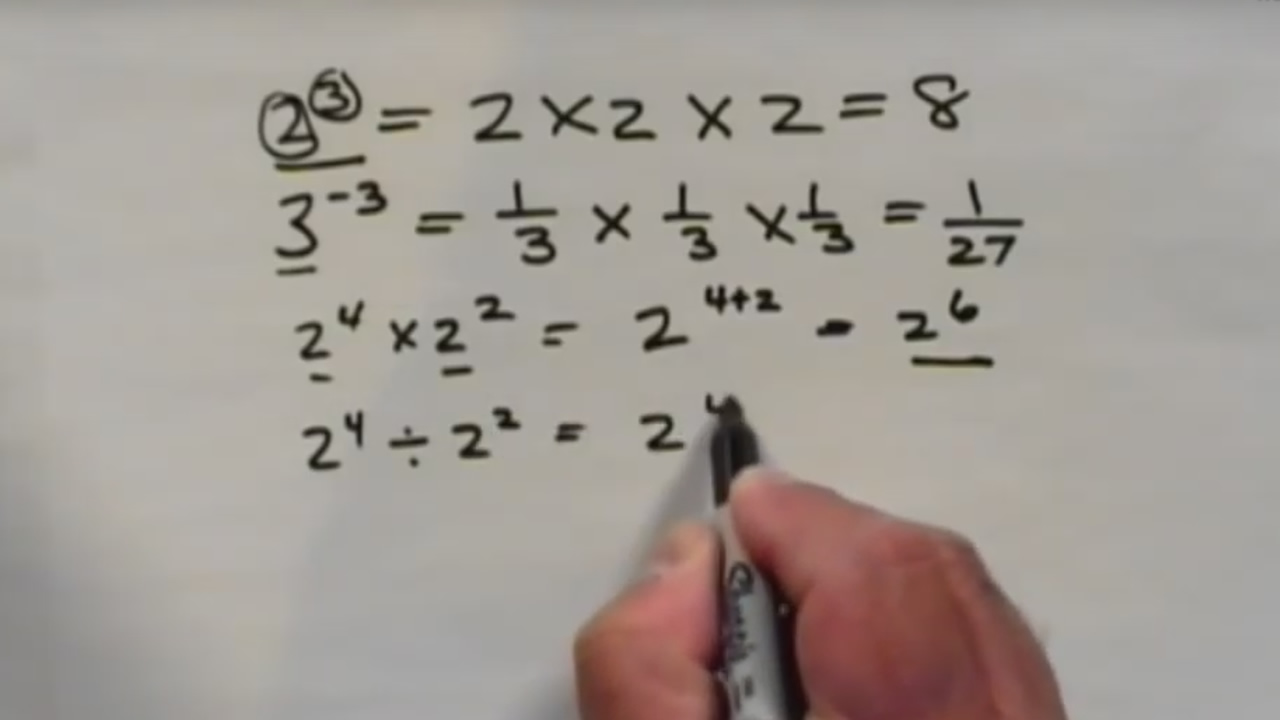 2³ = 2 × 2 × 2 = 8
3⁻³ = 1/3 × 1/3 × 1/3 = 1/27
2⁴ × 2² = 2⁴⁺² - 2⁶
2⁴ ÷ 2² = 2⁴